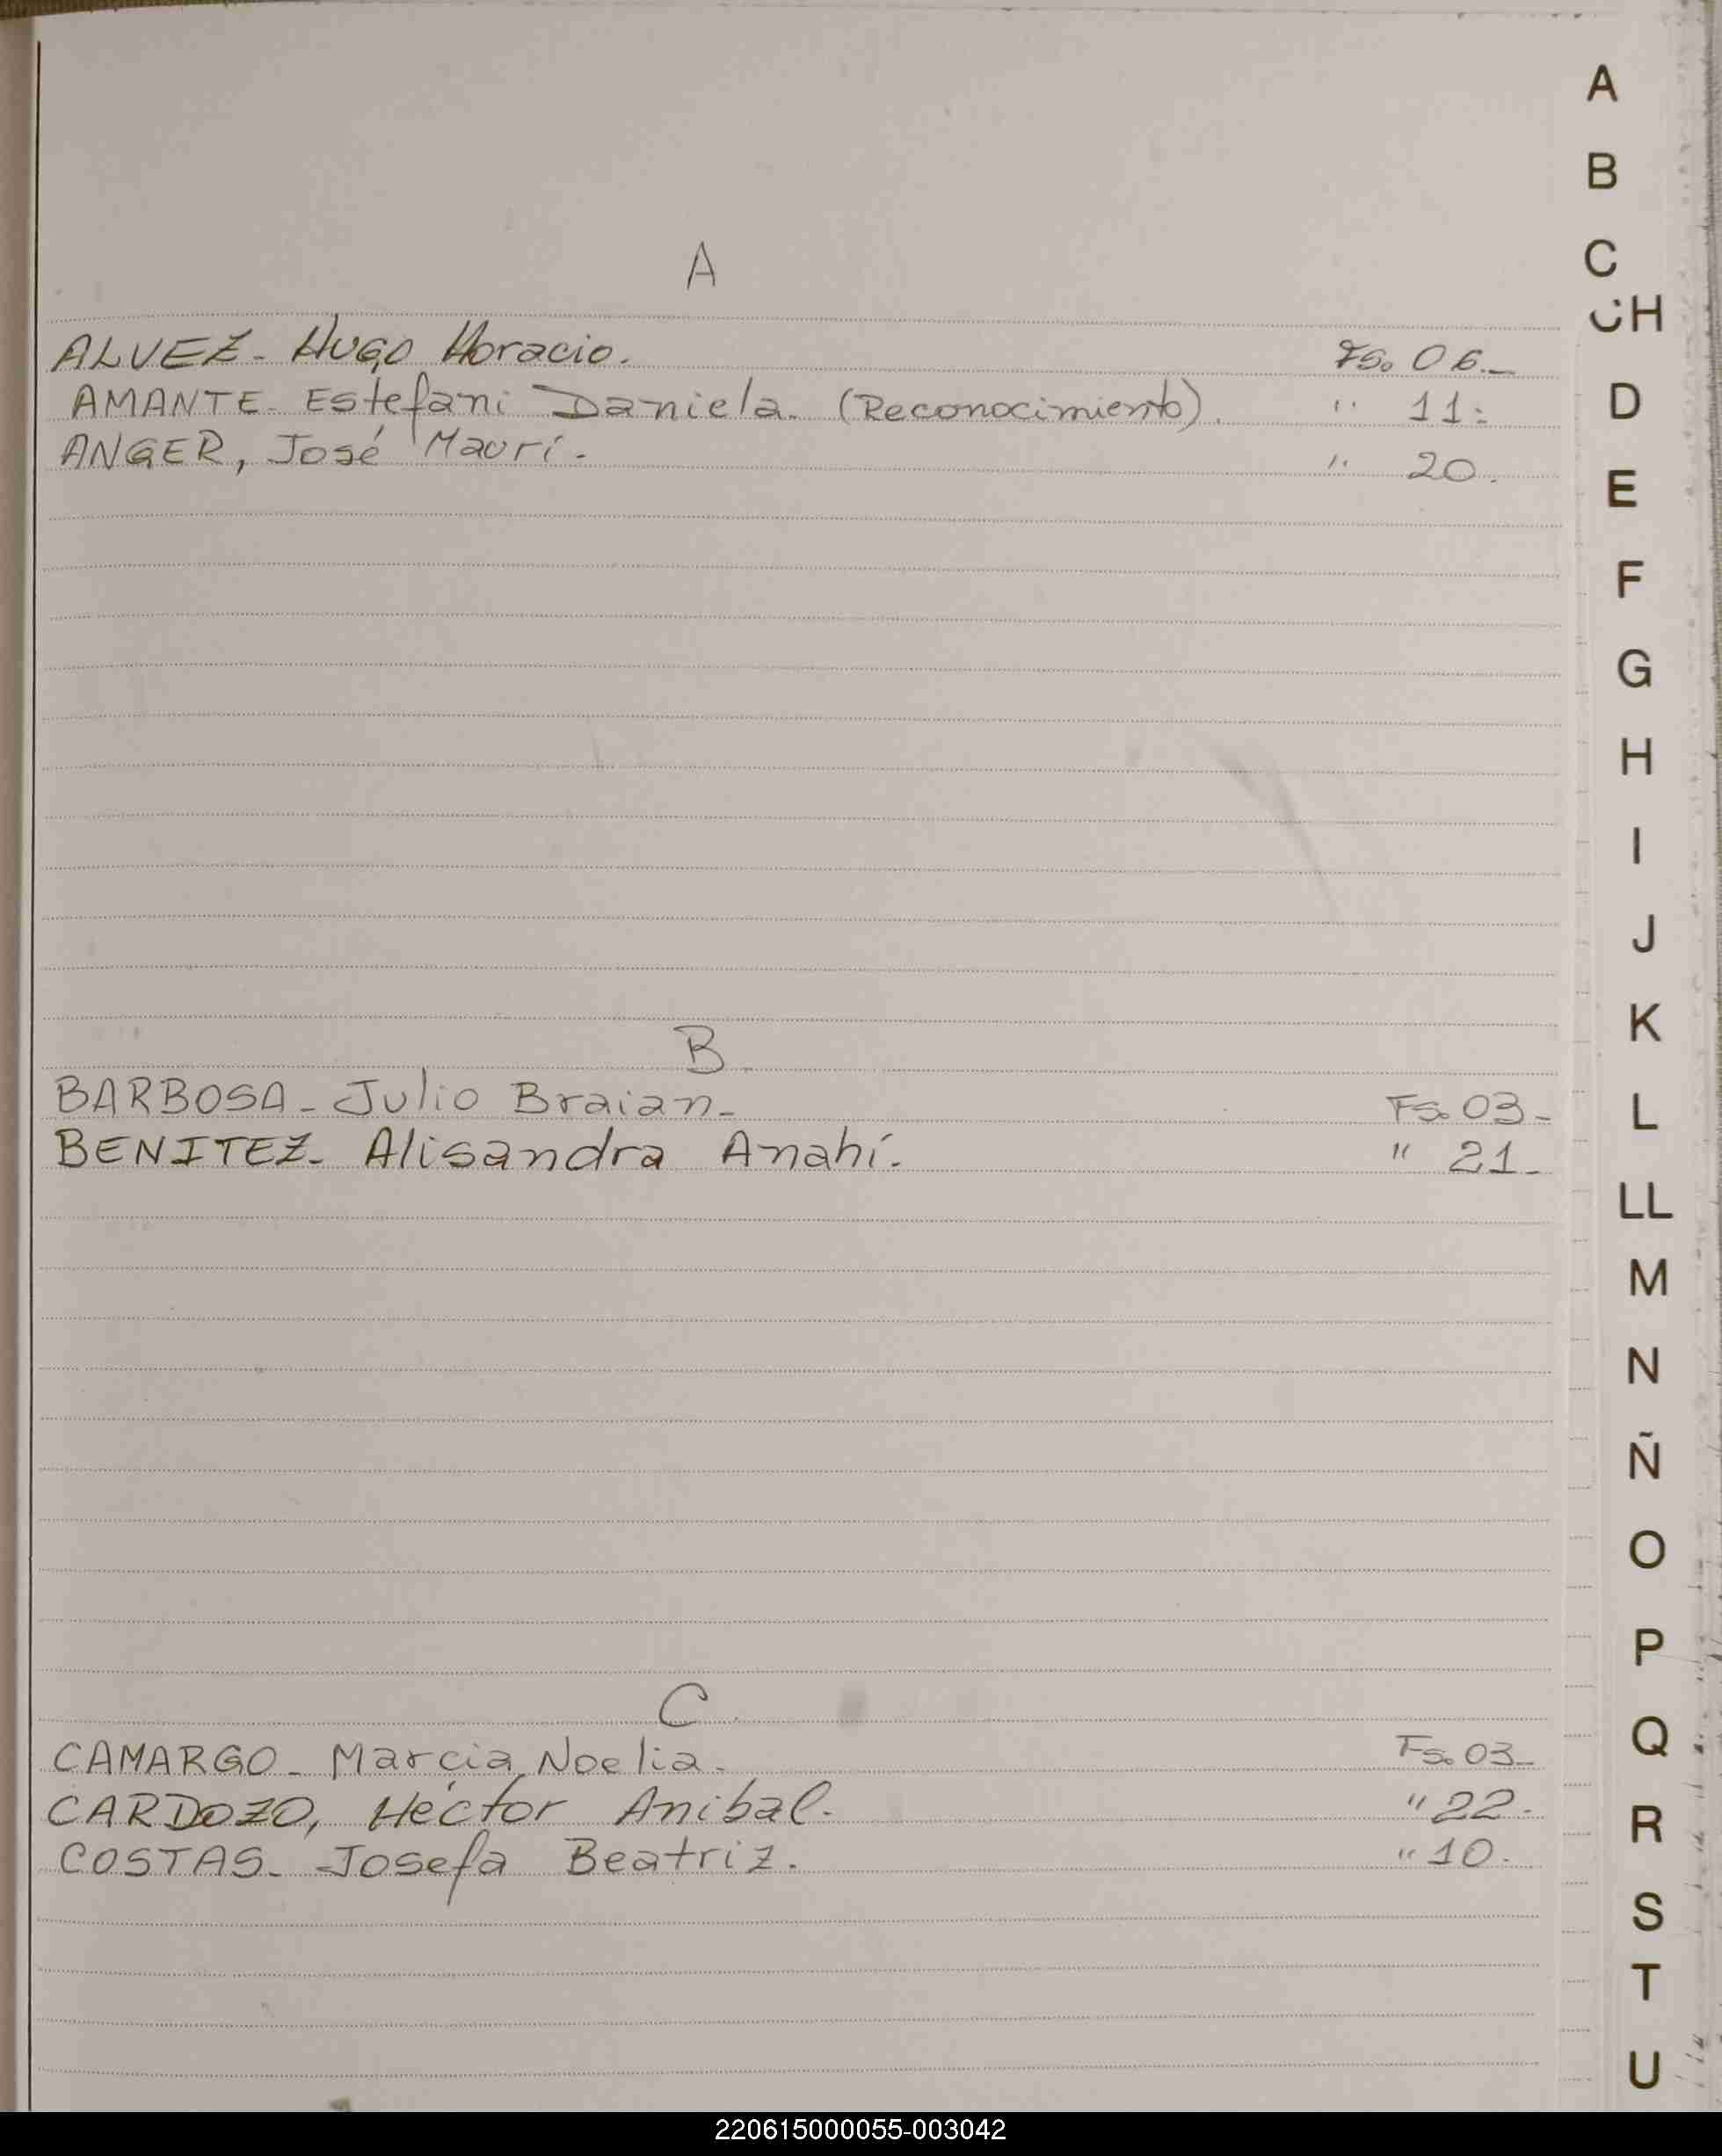 A
ALVEZ - Hugo Horacio. Fs. 06.-
AMANTE - Estefani Daniela. (Reconocimiento). " 11.-
ANGER, José Maurí. " 20.
B
BARBOSA - Julio Braian - Fs. 03 -
BENITEZ - Alisandra Anahí. " 21 -
C
CAMARGO - Marcia Noelia - Fs. 03 -
CARDOZO, Héctor Anibal. " 22.
COSTAS - Josefa Beatriz. " 10.
A
B
C
CH
D
E
F
G
H
I
J
K
L
LL
M
N
Ñ
O
P
Q
R
S
T
U
220615000055-003042